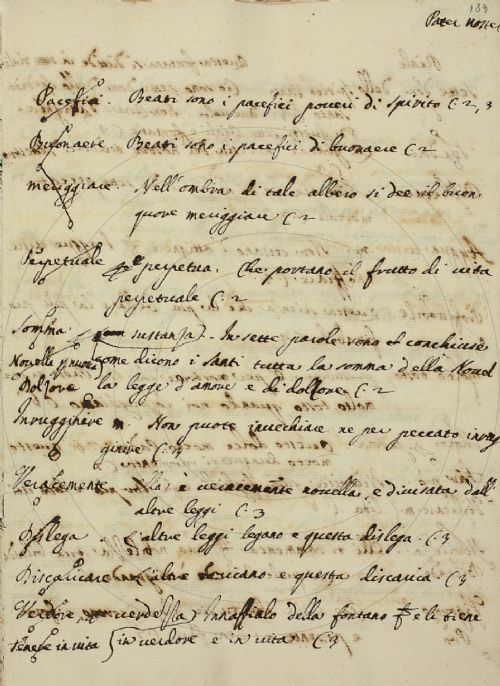 139
Pater noster
Pacefici. Beati sono i pacefici poveri di spirito C. 2, 3
Buonaere Beati sono i pacefici di buonaere C 2
meriggiare Nell'ombra di tale albero si dee il buon
quore meriggiare C 2
Perpetuale e perpetua. Che portano il frutto di vita
perpetuale C. 2
Somma sustanza. In sette parole sono conchiuse
Novella p nuova come dicono i Santi tutta la somma della Novel
Dolzore la legge d'amore e di dolzore C 2
Inrugginire n. Non puote invecchiare ne per peccato inrug
ginire C. 3
Veracemente Ella è veracemente novella, e divisata dall'
altre leggi C. 3
Dislega L'altre leggi legano e questa dislega. C. 3
Discaricare L'altre caricano e questa discarica. C. 3
Verdore verdezza Innaffialo della fontana e li tiene
tenere in vita in verdore e in vita C. 3